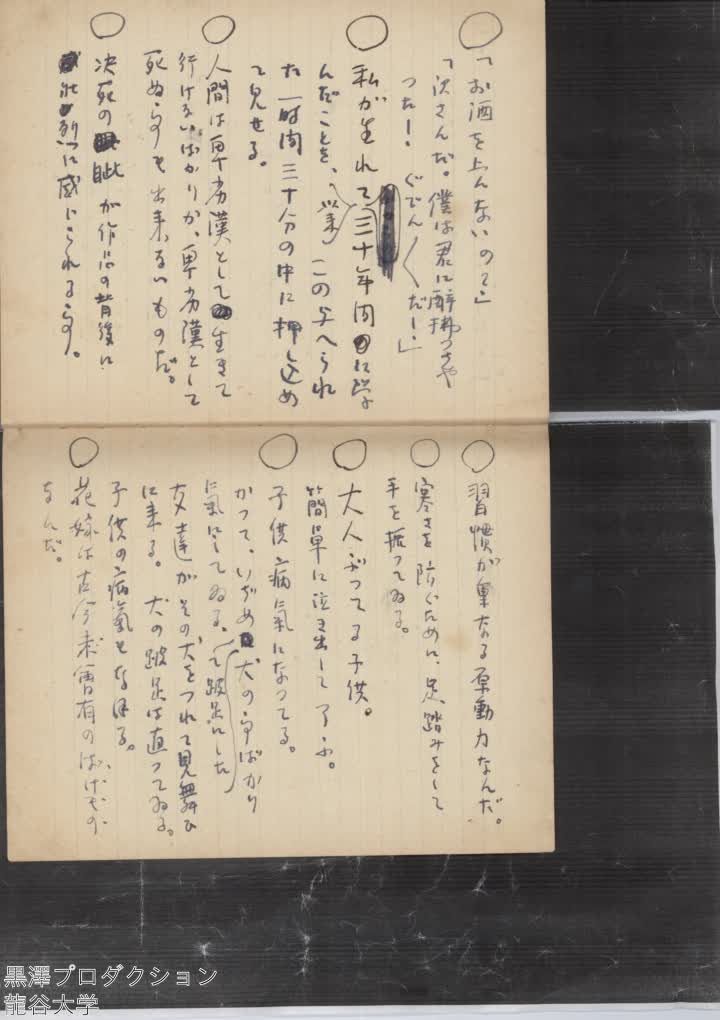 ○
「お酒を上んないの?」
「沢さんだ。僕は君に醉拂つちや
つた! ぐでん〱だー!」
○
私が生れて三十年間に学
んだことを、(以来)この与へられ
た一時間三十分の中に押し込め
て見せる。
○
人間は卑劣漢として生きて
行けないばかりか、卑劣漢として
死ぬ事も出来ないものだ。
○
決死の眦が作品の背後に
壮烈に感じられる事。
○
習慣が単なる原動力なんだ。
○
寒さを防ぐために、足踏みをして
手を振つてゐる。
○
大人ぶつてる子供。
簡單に泣き出して了ふ。
○
子供病氣になつてる。
かつて、いぢめ犬の事ばかり
氣にしてゐる。(て跛足にした
友達がその犬をつれて見舞ひ
に来る。犬の跛足は直つてゐる。
子供の病氣もなほる。
○
花嫁は古今未曽有のばけもの
なんだ。
黒澤プロダクション
龍谷大学